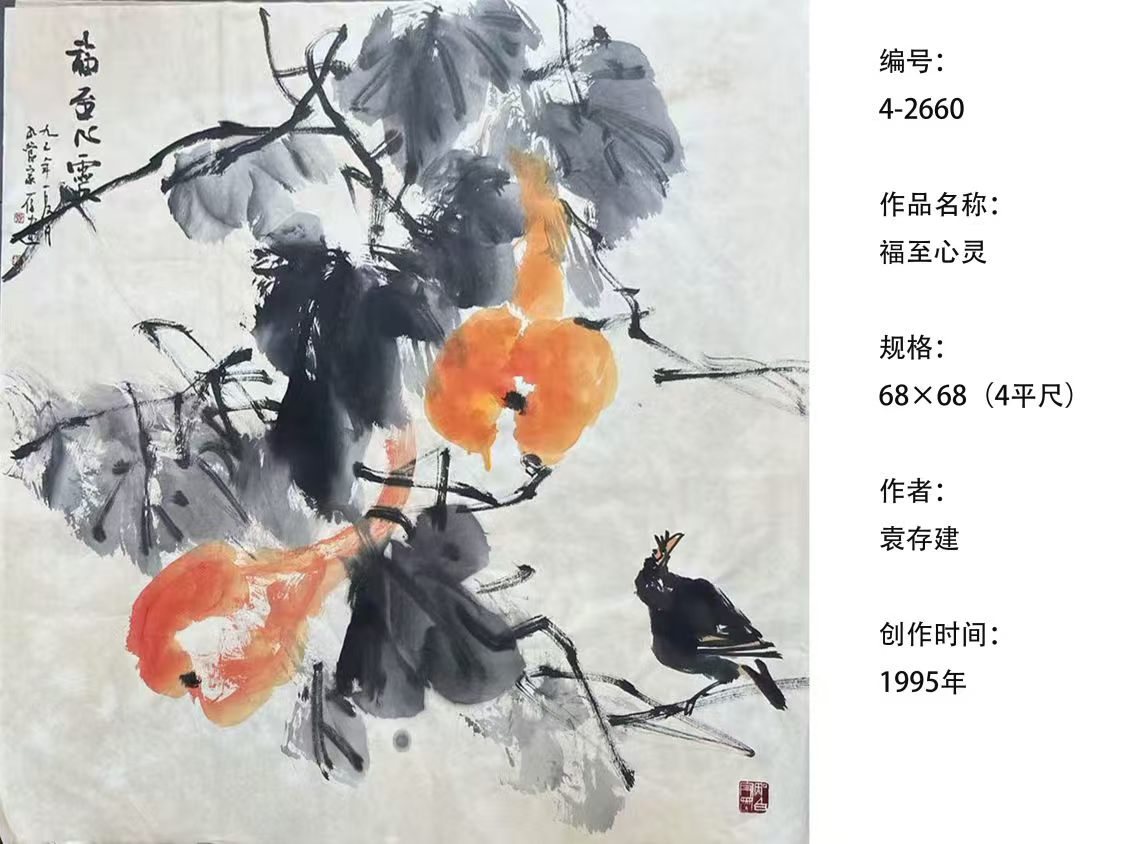 福至心靈
编号：
4-2660
作品名称：
福至心灵
规格：
68×68（4平尺）
作者：
袁存建
创作时间：
1995年